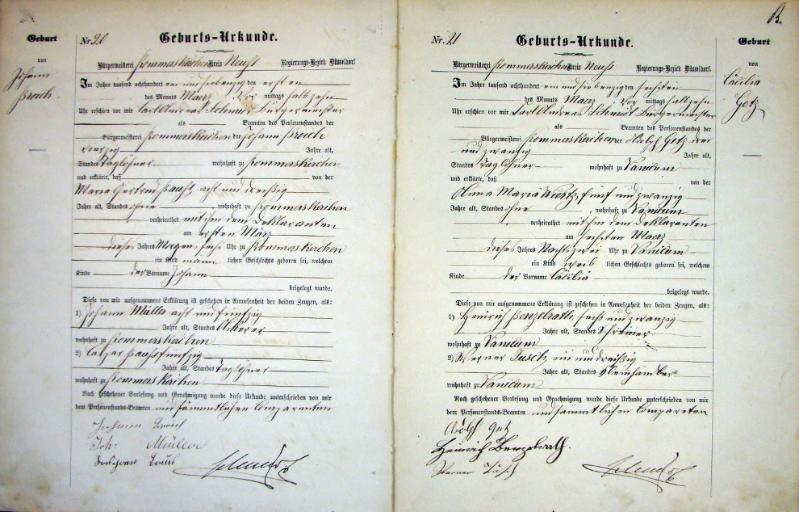 Geburt
von
Johann
Nr. 20 Geburts-Urkunde.
Bürgermeisterei Rommerskirchen Kreis Neuß Regierungs-Bezirk Düsseldorf.
Im Jahre tausend achthundert ein und siebenzig den ersten
des Monats Maerz Vor mittags halb zehn
Uhr erschien vor mir Carl Andreas Schmidt Bürgermeister
als Beamten des Personenstandes der
Bürgermeisterei Rommerskirchen der Johann
vierzig Jahre alt,
Standes Taglöhner wohnhaft zu Rommerskirchen
und erklärte, daß von der
Maria Gertrud acht und dreißig
Jahre alt, Standes ohne, wohnhaft zu Rommerskirchen
verheirathet mit ihm dem Deklaranten
am ersten März
dieses Jahres Morgens sechs Uhr zu Rommerskirchen
ein Kind männlichen Geschlechts geboren sei, welchem
Kinde der Vorname Johann
beigelegt wurde.
Diese von mir aufgenommene Erklärung ist geschehen in Anwesenheit der beiden Zeugen, als:
1) Johann Müller acht und fünfzig
Jahre alt, Standes Ackerer
wohnhaft zu Rommerskirchen
2) fünfzig
Jahre alt, Standes Taglöhner
wohnhaft zu Rommerskirchen
Nach geschehener Vorlesung und Genehmigung wurde diese Urkunde unterschrieben von mir
dem Personenstands-Beamten und sämmtlichen Comparenten
Johann
Joh. Müller
B.
Nr. 21 Geburts-Urkunde.
Geburt
von
Cäcilia
Getz
Bürgermeisterei Rommerskirchen Kreis Neuß Regierungs-Bezirk Düsseldorf.
Im Jahre tausend achthundert ein und siebenzig den sechsten
des Monats Maerz Vor mittags halb zehn
Uhr erschien vor mir Carl Andreas Schmidt Bürgermeister
als Beamten des Personenstandes der
Bürgermeisterei Rommerskirchen der Adolf Getz drei
und zwanzig Jahre alt,
Standes Taglöhner wohnhaft zu Vanikum
und erklärte, daß von der
Anna Maria fünf und zwanzig
Jahre alt, Standes ohne, wohnhaft zu Vanikum
verheirathet mit ihm dem Deklaranten
am sechsten Maerz
dieses Jahres Nachts zwei Uhr zu Vanikum
ein Kind weiblichen Geschlechts geboren sei, welchem
Kinde der Vorname Cäcilia
beigelegt wurde.
Diese von mir aufgenommene Erklärung ist geschehen in Anwesenheit der beiden Zeugen, als:
1) Heinrich Berzelrath sechs und zwanzig
Jahre alt, Standes Schreiner
wohnhaft zu Vanikum
2) Werner ein und dreißig
Jahre alt, Standes
wohnhaft zu Vanikum
Nach geschehener Vorlesung und Genehmigung wurde diese Urkunde unterschrieben von mir
dem Personenstands-Beamten und sämmtlichen Comparenten
Adolf Getz
Heinrich Berzelrath.
Werner